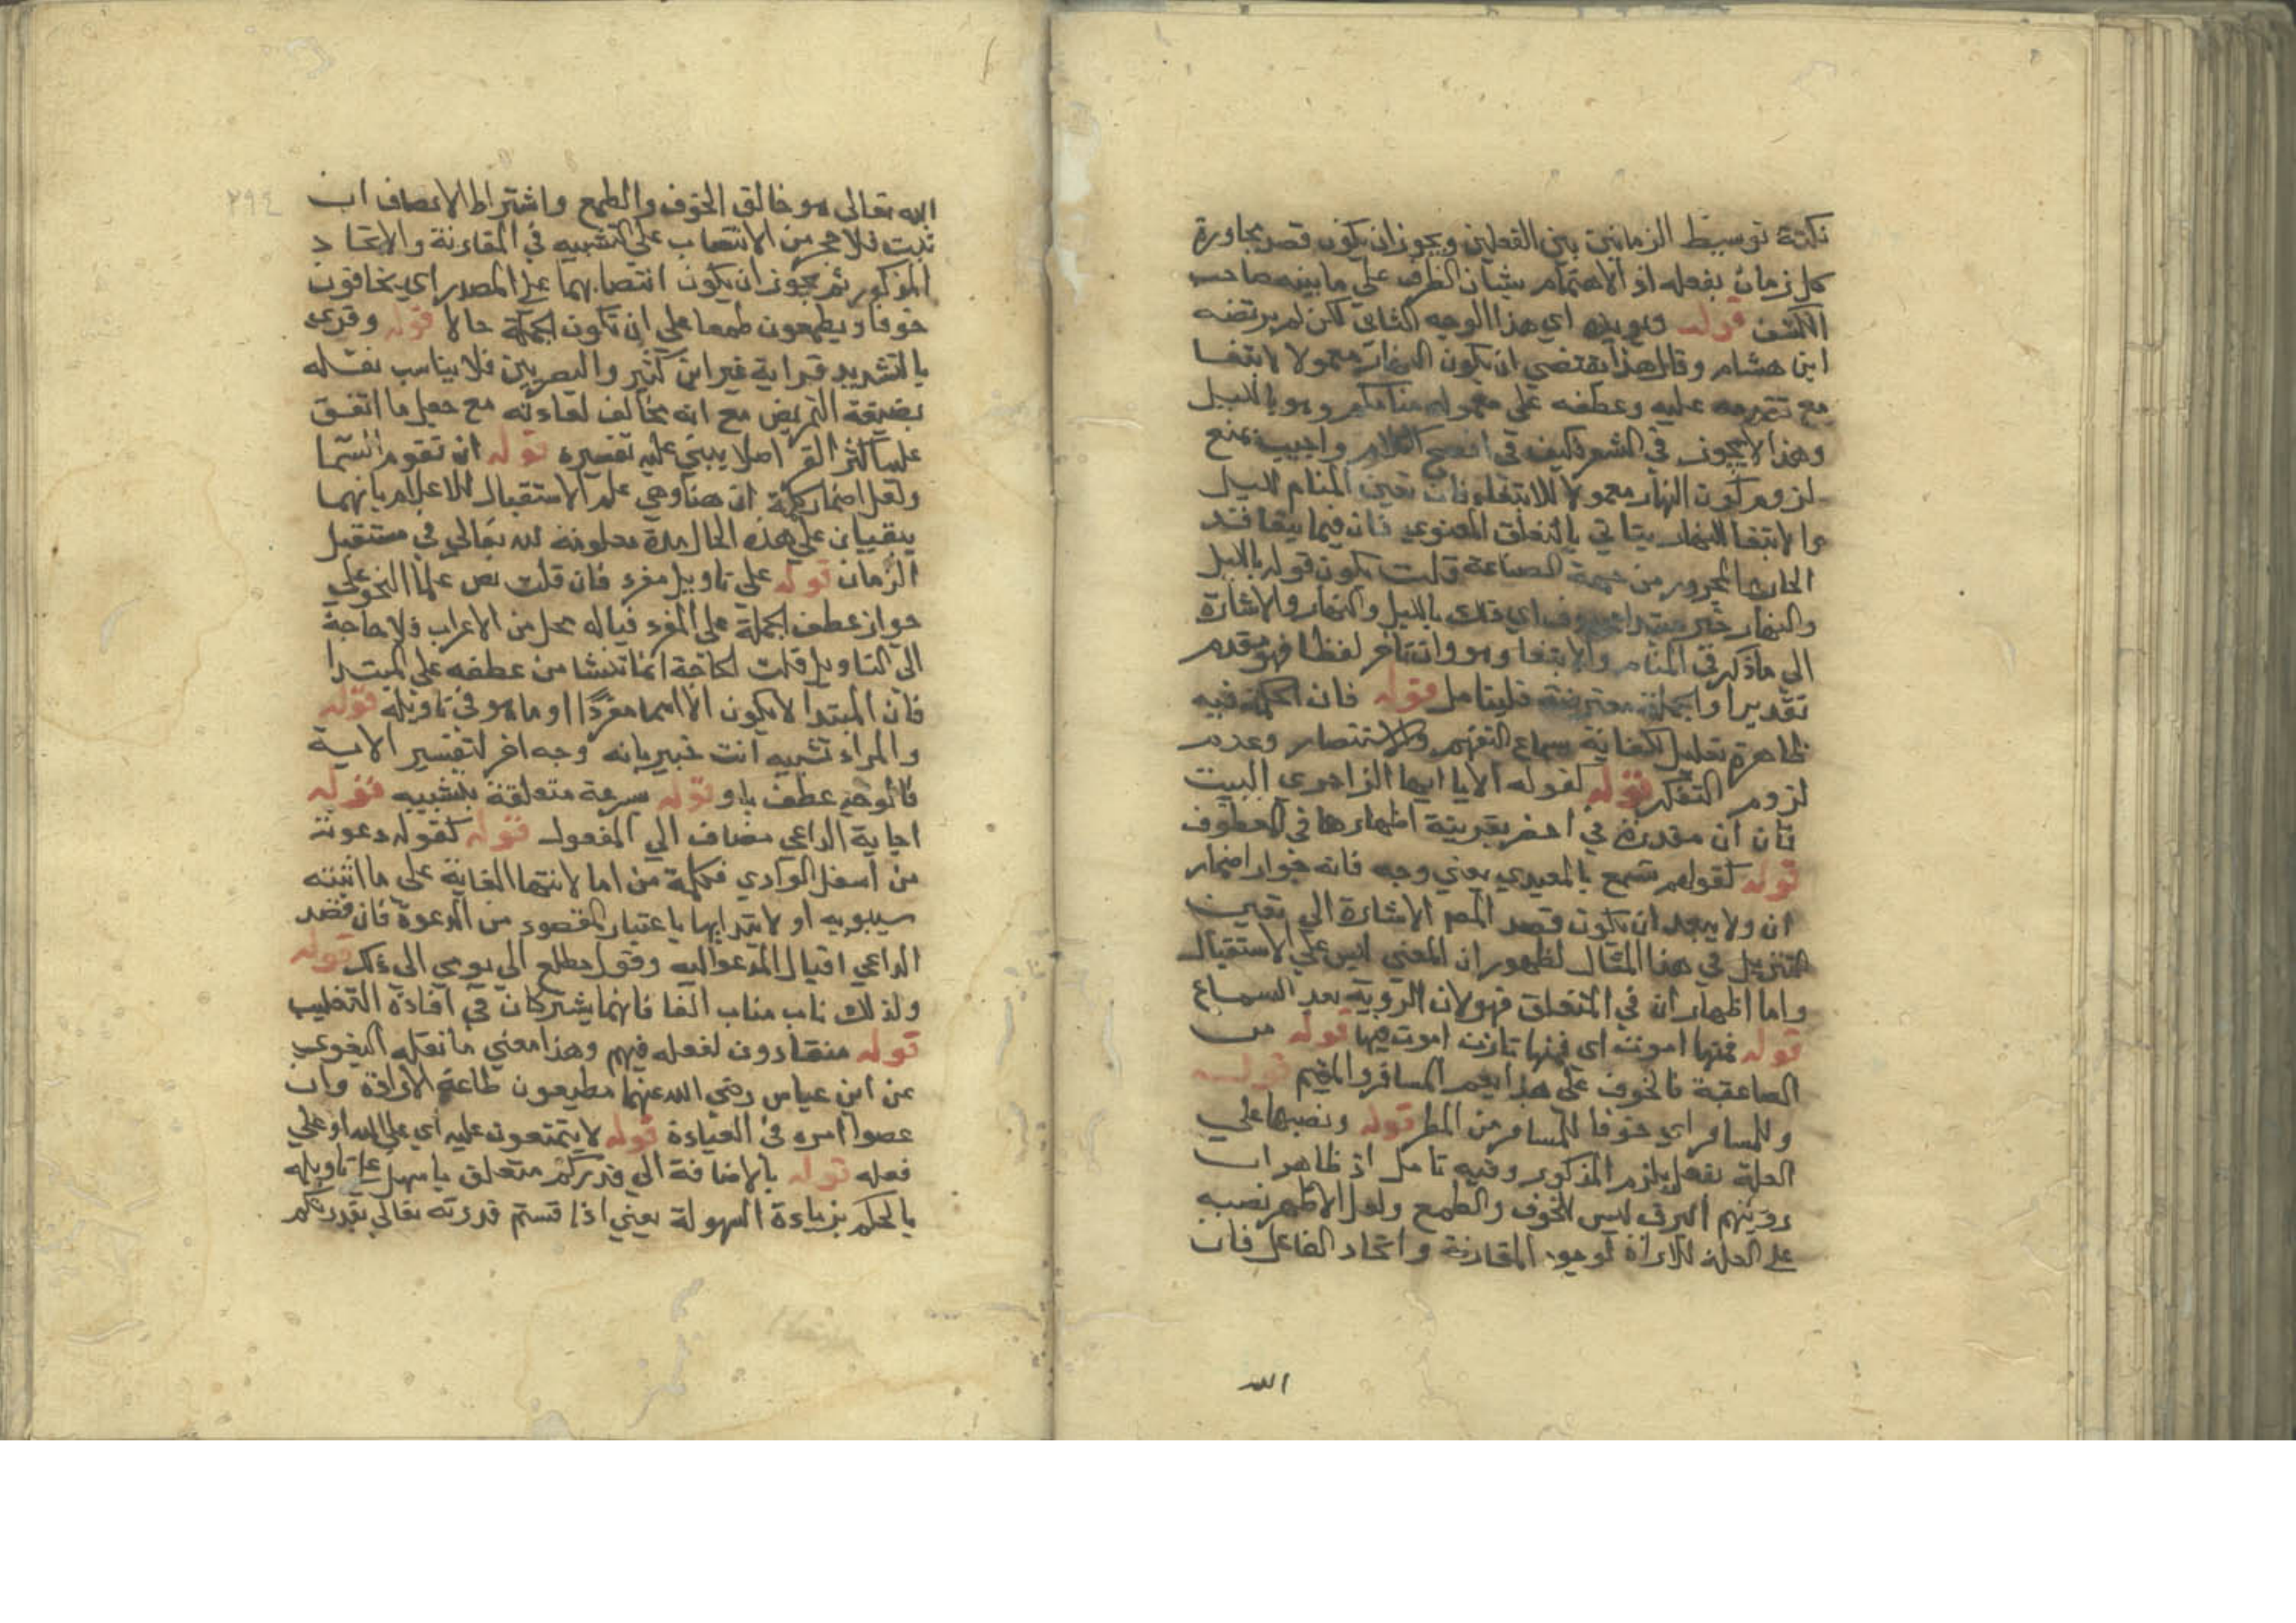 نكتة توسيط الزمانين بين الفعلين ويجوز ان يكون قصد مجاورة
كل زمان بفعله او الاهتمام بشان الظرف على ما بينه صاحب
الكشف قوله ويويده اي هذا الوجه الثاني لكن لم يرتضه
ابن هشام وقال هذا يقتضي ان يكون النهار معمولا لابتغا
مع تقدمه عليه وعطفه على معموله منامكم وهو بالليل
وهذا لا يجوز في الشعر فكيف في افصح الكلام واجيب بمنع
لزوم كون النهار معمولا للابتغا فان تعين المنام لليل
والابتغا للنهار يتاتي بالتعلق المعنوي فان فيما بيقا فند
الجار والمجرور من جهة الصناعة قلت يكون قوله بالليل
والنهار خبر مبتدا محذوف اي ذلك بالليل والنهار والاشارة
الى ما ذكر في المنام والابتغا وهو وان تاخر لفظا فهو مقدم
تقديرا والجملة معترضة فليتامل قوله فان الحكمة فيه
ظاهرة تعليل لكفاية سماع التفهم والاستبصار وعدم
لزوم التفكر قوله كقوله الا يا ايها الزاجري البيت
فان ان مقدرة في احضر بقرينة اظهارها في المعطوف
قوله كقولهم تسمع بالمعيدي يعني وجه فانه جواز اضمار
ان ولا يبعد ان تكون قصد المص الاشارة الى تعيين
التنزيل في هذا المثال لظهور ان المعنى ليس على الاستقبال
واما اظهار ان في المتعلق فهو لان الروية بعد السماع
قوله فمنها اموت اي فمنها تارت اموت فيها قوله من
الصاعقة فالخوف على هذا يعم المسافر والمقيم قوله
وللمسافر اي خوفا للمسافر من المطر قوله ونصبها على
العلة بفعل يلزم المذكور وفيه تامل اذ ظاهر ان
رويتهم البرق ليس للخوف والطمع ولعل الاظهر نصبه
على العلة للاراة لوجود المقارنة واتحاد الفاعل فان
الله
٢٩٤
الله تعالى هو خالق الخوف والطمع واشتراط الاعصاف ان
ثبت فلا محز من الانتصاب على التشبيه في المقارنة والاتحاد
المذكور ثم يجوز ان يكون انتصابهما على المصدر اي يخافون
خوفا ويطمعون طمعا على ان تكون الجملة حالا قوله وقرئ
بالتشديد قراية غير ابن كثير والبصريين فلا يناسب نقله
بصيغة التمريض مع انه مخالف لعادته مع جعل ما اتفق
عليه اكثر القرا اصلا يبني عليه تفسيره قوله ان تقوم السما
ولعل اضمار كلمة ان هنا وهي علم الاستقبال للاعلام بانهما
يبقيان على هذه الحال مدة معلومة لله تعالى في مستقبل
الزمان قوله على تاويل مفرد فان قلت نص علما النحو على
جواز عطف الجملة على المفرد فيما له محل من الاعراب فلا حاجة
الى التاويل قلت الحاجة انما تنشا من عطفه على المبتدا
فان المبتدا لا يكون الا اسما مفردا او ما هو في تاويله قوله
والمراد تشبيه انت خبير بانه وجه اخر لتفسير الاية
فالوجه عطف باو قوله سرعة متعلقة بتشبيه قوله
اجابة الداعي مضاف الى المفعول قوله كقوله دعوت
من اسفل الوادي فكلمة من اما لانتها الغاية على ما اثبته
سيبويه او لابتدايها باعتبار المقصود من الدعوة فان قصد
الداعي اقبال المدعو اليه وقول مطلع الى يومي الى ذلك قوله
ولذلك ناب مناب الفا فانهما يشتركان في افادة التعقيب
قوله منقادون لفعله فيهم وهذا معنى ما نقله البغوي
عن ابن عباس رضي الله عنهما مطيعون طاعة الارادة وان
عصوا امره في العبادة قوله لا يمتنعون عليه اي على الله او على
فعله قوله بالاضافة الى قدركم متعلق باسهل على تاويله
بالحكم بزيادة السهولة يعني اذا قستم قدرته تعالى بقدرتكم